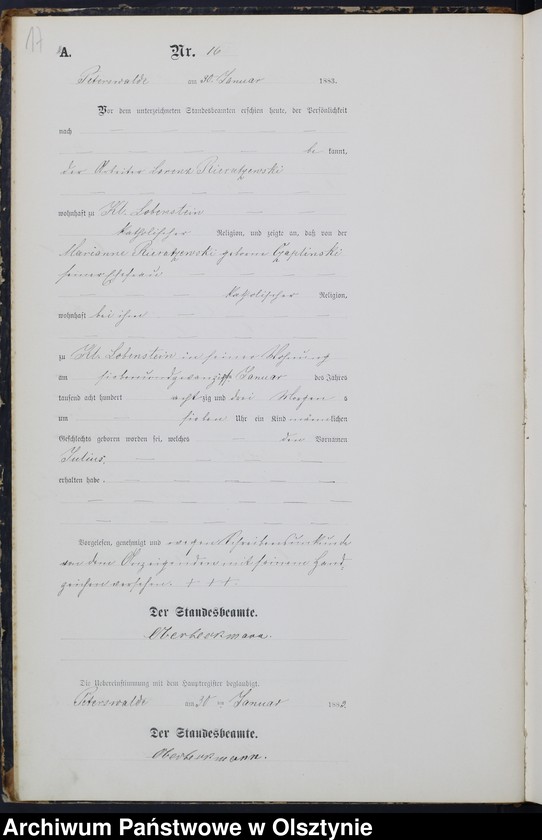 17
A. Nr. 16
Peterswalde am 30. Januar 1883.
Vor dem unterzeichneten Standesbeamten erschien heute, der Persönlichkeit
nach
be kannt,
der Arbeiter Lorenz
wohnhaft zu Kl. Lobenstein
katholischer Religion, und zeigte an, daß von der
Marianne geborne Czaplinski
seiner Ehefrau
katholischer Religion,
wohnhaft bei ihm
zu Kl. Lobenstein in seiner Wohnung
am siebenundzwanzigsten Januar des Jahres
tausend acht hundert achtzig und drei
um sieben Uhr ein Kind männlichen
Geschlechts geboren worden sei, welches den Vornamen
Julius,
erhalten habe.
Vorgelesen, genehmigt und wegen Schreibensunkunde
von dem Anzeigenden mit seinem Hand-
zeichen versehen. + + +
Der Standesbeamte.
Oberbeckmann.
Die Uebereinstimmung mit dem Hauptregister beglaubigt.
Peterswalde am 30 ten Januar 1883.
Der Standesbeamte.
Oberbeckmann.
Archiwum Państwowe w Olsztynie